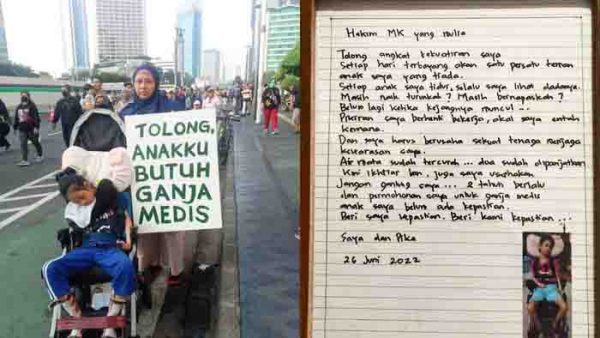 TOLONG,
ANAKKU
BUTUH
GANJA
MEDIS
Hakim MK yang mulia
Tolong angkat kekuatiran saya
Setiap hari terbayang akan satu persatu teman
anak saya yang tiada.
Setiap anak saya tidur, selalu saya lihat dadanya.
Masih naik turunkah? Masih bernapaskah?
Belum lagi ketika kejangnya muncul...
Pikiran saya berhenti bekerja, akal saya entah
kemana.
Dan saya harus berusaha sekuat tenaga menjaga
kewarasan saya.
Air mata sudah tercurah... doa sudah dipanjatkan
Kini ikhtiar lain, juga saya usahakan
Jangan gantung saya... 2 tahun berlalu
dan permohonan saya untuk ganja medis
anak saya belum ada kepastian.
Beri saya kepastian. Beri kami kepastian...
Saya dan Pika
26 Juni 2022